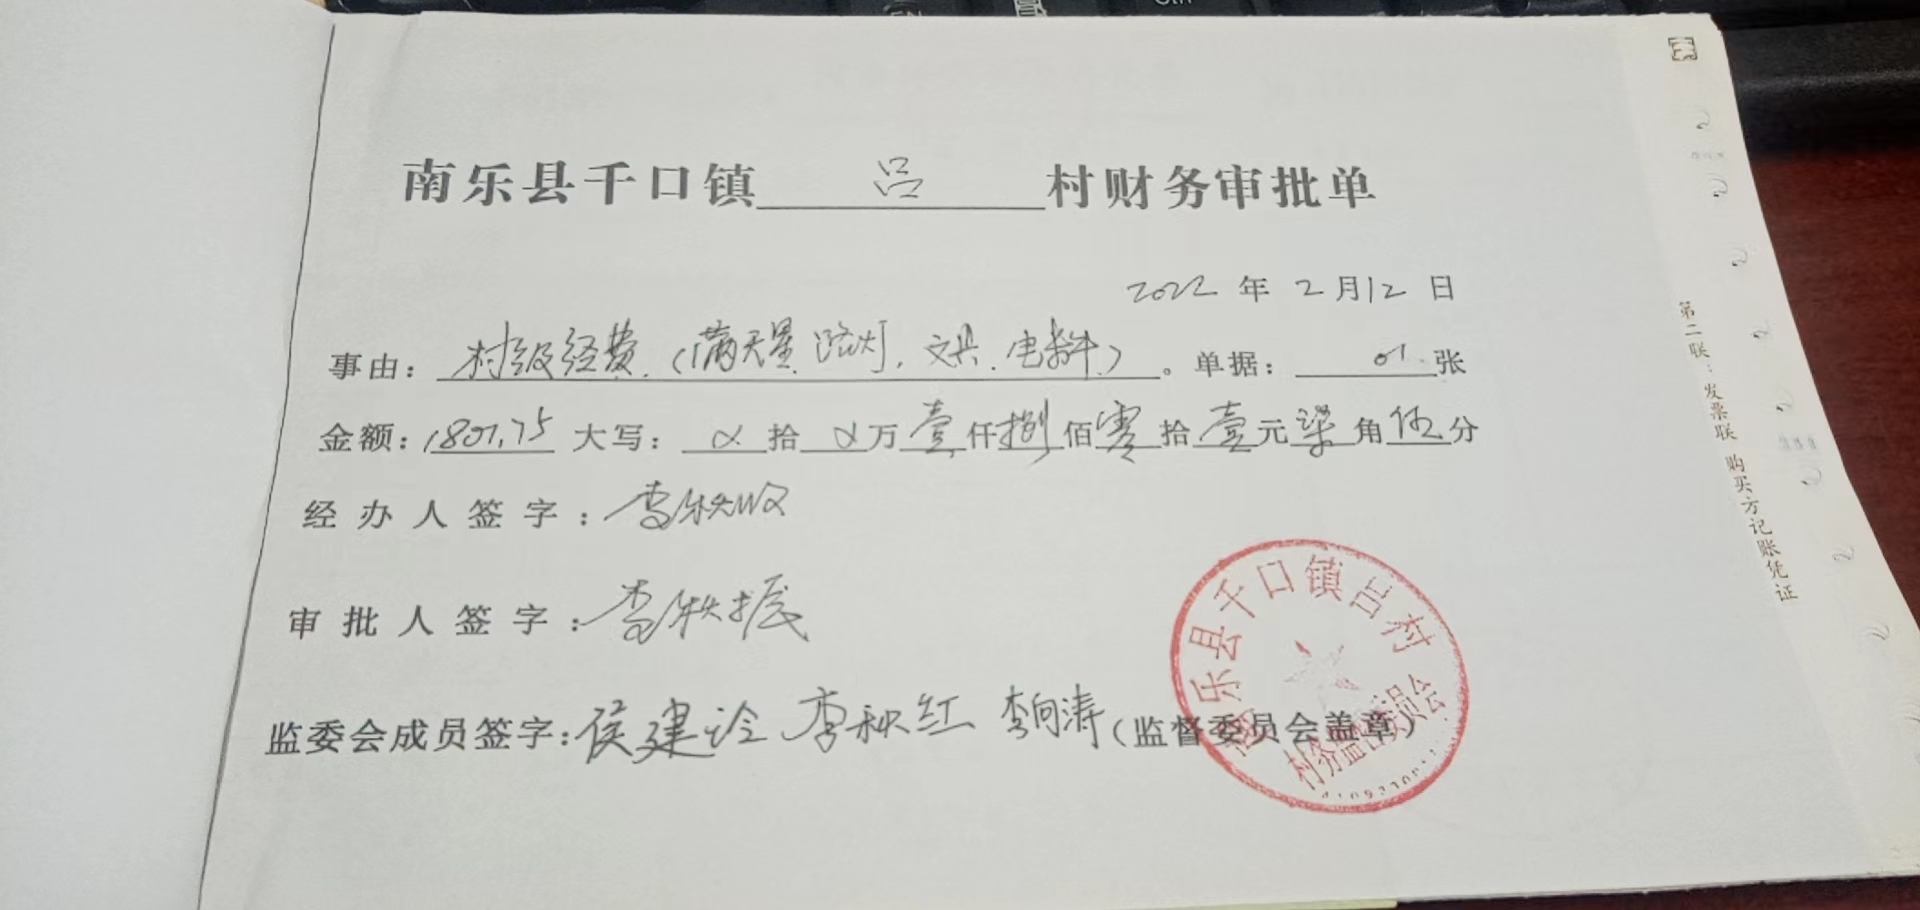 南乐县千口镇 吕 村财务审批单
2022 年 2 月 12 日
事由：村级经费（满天星路灯、文具、电料）。单据：01 张
金额：1801.75 大写：α 拾 α 万 壹 仟 捌 佰 零 拾 壹 元 柒 角 伍 分
经办人签字：李秋收
审批人签字：李秋振
监委会成员签字：侯建 李秋红 李向涛（监督委员会盖章）
南乐县千口镇吕村
村务监督委员会
第二联：发票联 购买方记账凭证